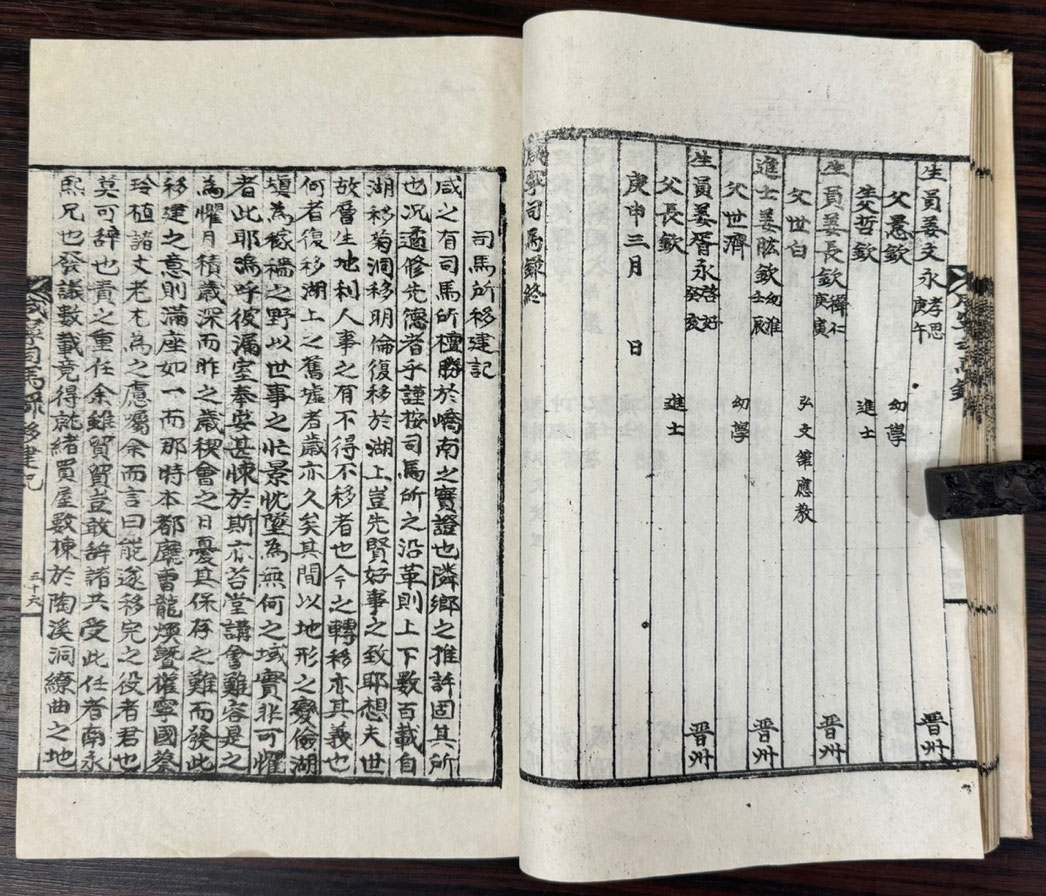 生員姜文永 孝思 庚午 晋州
父愚欽 幼學
生父哲欽 進士
生員姜長欽 舜仁 庚寅 晋州
父世白 弘文館應教
進士姜胘欽 幼淮 壬辰 晋州
父世濟 幼學
生員姜胥永 啓好 癸亥 晋州
父長欽 進士
庚申三月 日
咸寧司馬錄終
司馬所移建記
咸之有司馬所擅勝於嶠南之實證也隣鄉之推許固其所
也况遹修先德者乎謹按司馬所之沿革則上下數百載自
湖移菊洞移明倫復移於湖上豈先賢好事之致耶想夫世
故層生地利人事之有不得不移者也今之轉移亦其義也
何者復移湖上之舊墟者歲亦久矣其間以地形之變倫湖
塡為稼穡之野以世事之忙景忱墜為無何之域實非可懼
者此耶嗚呼彼漏室奉安甚悚於斯亦苔堂講會難容是之
為懼月積歲深而昨之歲稧會之日憂其保存之難而發此
移建之意則滿座如一而那時本都廳曺龍煥曁權寧國蔡
玲植諸丈老尤為之慮屬余而言曰能遂移完之役者君也
莫可辭也責之重任余雖貿貿豈敢辞諸共受此任者南永
熙兄也發議數載竟得就緒買屋數棟於陶溪洞繚曲之地
咸寧司馬錄 移建記 五十六